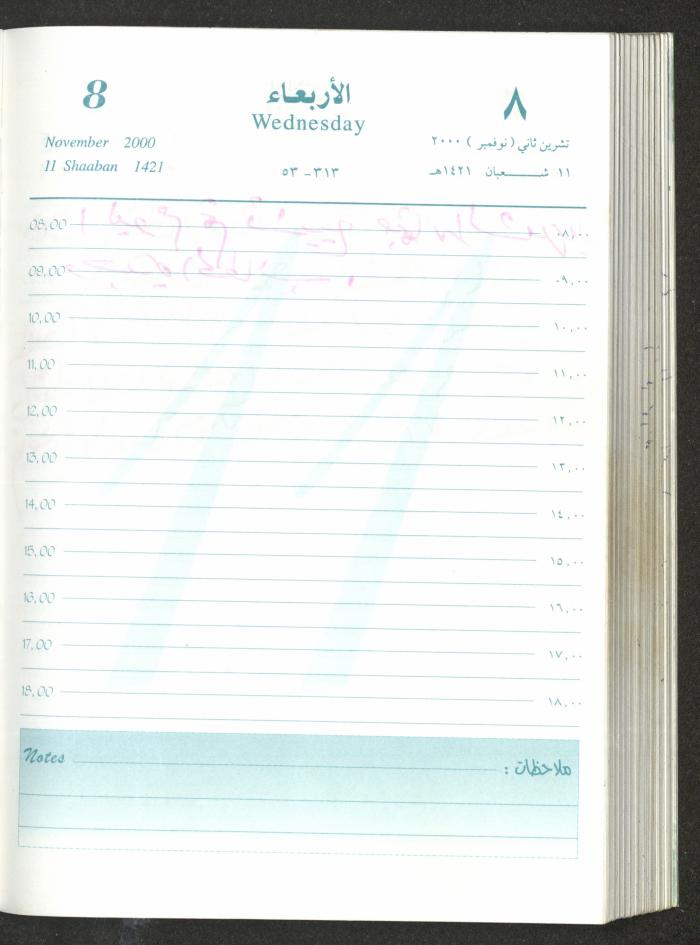 8 الأربعاء ٨
Wednesday
November 2000 تشرين ثاني ( نوفمبر ) ٢٠٠٠
11 Shaaban 1421 ٣١٣ - ٥٣ ١١ شـــعبان ١٤٢١هـ
08,00 ٠٨,٠٠
09,00 ٠٩,٠٠
10,00 ١٠,٠٠
11,00 ١١,٠٠
12,00 ١٢,٠٠
13,00 ١٣,٠٠
14,00 ١٤,٠٠
15,00 ١٥,٠٠
16,00 ١٦,٠٠
17,00 ١٧,٠٠
18,00 ١٨,٠٠
Notes ملاحظات :